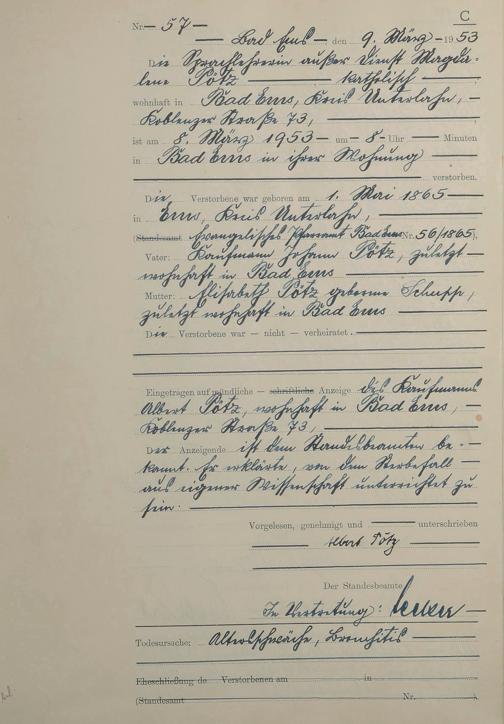 C
Nr. 57
Bad Ems, den 9. März 1953
Die Sprachlehrerin außer Dienst Magda-
lene Pötz katholisch
wohnhaft in Bad Ems, Kreis Unterlahn,
Koblenzer Straße 73,
ist am 8. März 1953 um 8 Uhr Minuten
in Bad Ems in ihrer Wohnung
verstorben.
Die Verstorbene war geboren am 1. Mai 1865
in Ems, Kreis Unterlahn,
(Standesamt Evangelisches Pfarramt Bad Ems Nr. 56/1865).
Vater: Kaufmann Johann Pötz, zuletzt
wohnhaft in Bad Ems
Mutter: Elisabeth Pötz geborene
zuletzt wohnhaft in Bad Ems
Die Verstorbene war — nicht — verheiratet.
Eingetragen auf mündliche — schriftliche Anzeige des Kaufmanns
Albert Pötz, wohnhaft in Bad Ems,
Koblenzer Straße 73,
Der Anzeigende ist dem Standesbeamten be-
kannt. Er erklärte, von dem Sterbefall
aus eigener Wissenschaft unterrichtet zu
sein.
Vorgelesen, genehmigt und unterschrieben
Albert Pötz
Der Standesbeamte
In Vertretung:
Todesursache: Altersschwäche, Bronchitis
Eheschließung de Verstorbenen am in
(Standesamt Nr. ).